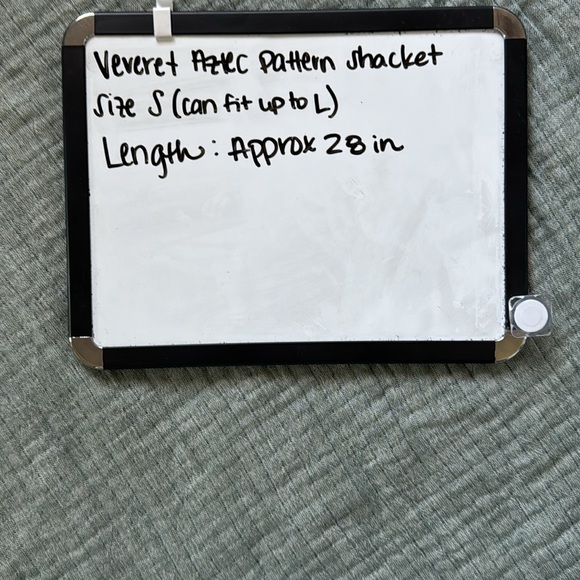 Veveret Aztec Pattern shacket
size S (can fit up to L)
Length: Approx 28 in